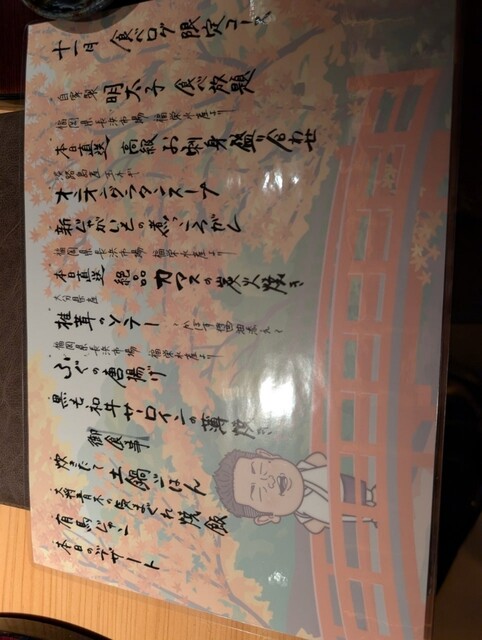 十一月 食べログ限定コース
自家製 明太子 食べ放題
福岡県長浜市場 福栄水産より
本日直送 高級お刺身盛り合わせ
淡路島産玉ネギ
オニオングラタンスープ
新じゃがいもの煮っころがし
福岡県長浜市場 福栄水産より
本日直送 絶品 カマスの炭火焼き
大分県産
椎茸のソテー
福岡県長浜市場 福栄水産より
ふぐの唐揚げ
黒毛和牛サーロインの薄焼き
御食事
炊きたて土鍋ごはん
大将青木の気まぐれ焼飯
有馬じゃこ
本日のデザート